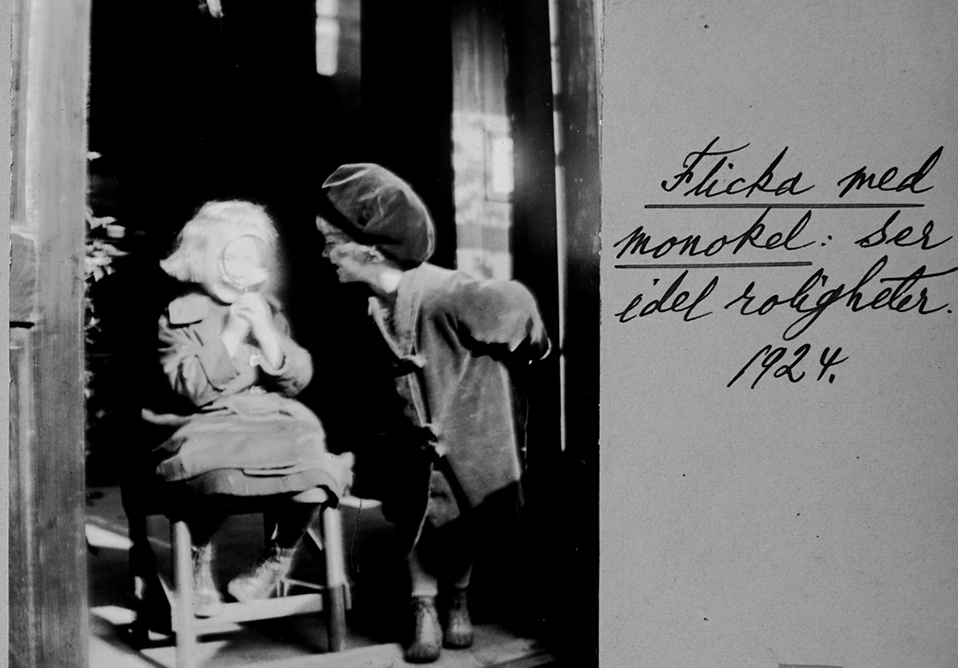 Flicka med
monokel: ser
idel roligheter.
1924.